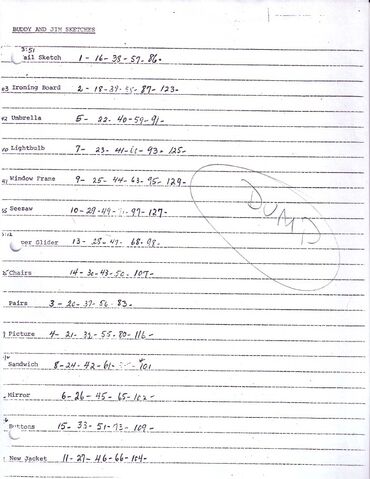 BUDDY AND JIM SKETCHES
3:51
ail Sketch 1 - 16 - 38 - 57 - 86 -
Ironing Board 2 - 18 - 39 - 87 - 123 -
Umbrella 5 - 22 - 40 - 59 - 91 -
Lightbulb 7 - 23 - 41 - 93 - 125 -
Window Frame 9 - 25 - 44 - 63 - 95 - 129 -
Seesaw 10 - 29 - 49 - 97 - 127 -
per Glider 13 - 28 - 47 - 68 - 98 -
DUMP
Chairs 14 - 30 - 43 - 50 - 107 -
Pairs 3 - 20 - 37 - 56 - 83 -
Picture 4 - 21 - 32 - 55 - 80 - 116 -
Sandwich 8 - 24 - 42 - 61 - 101
Mirror 6 - 26 - 45 - 65 - 102 -
Buttons 15 - 33 - 51 - 73 - 109 -
New Jacket 11 - 27 - 46 - 66 - 104 -